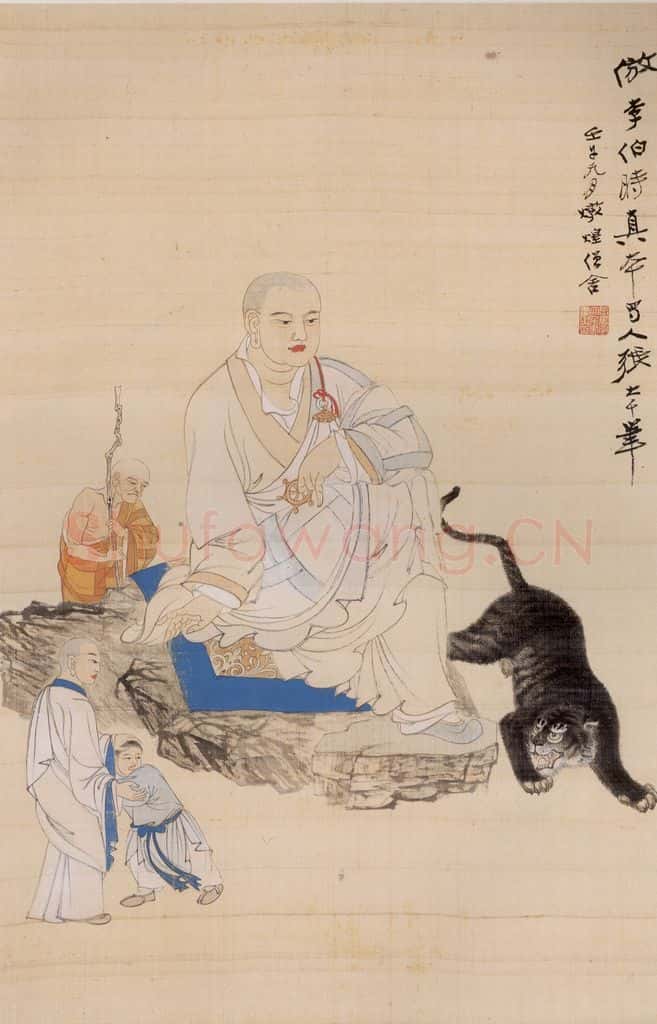 倣李伯時真本蜀人張大千筆
壬子九月燉煌僧舍
Shufawang.CN